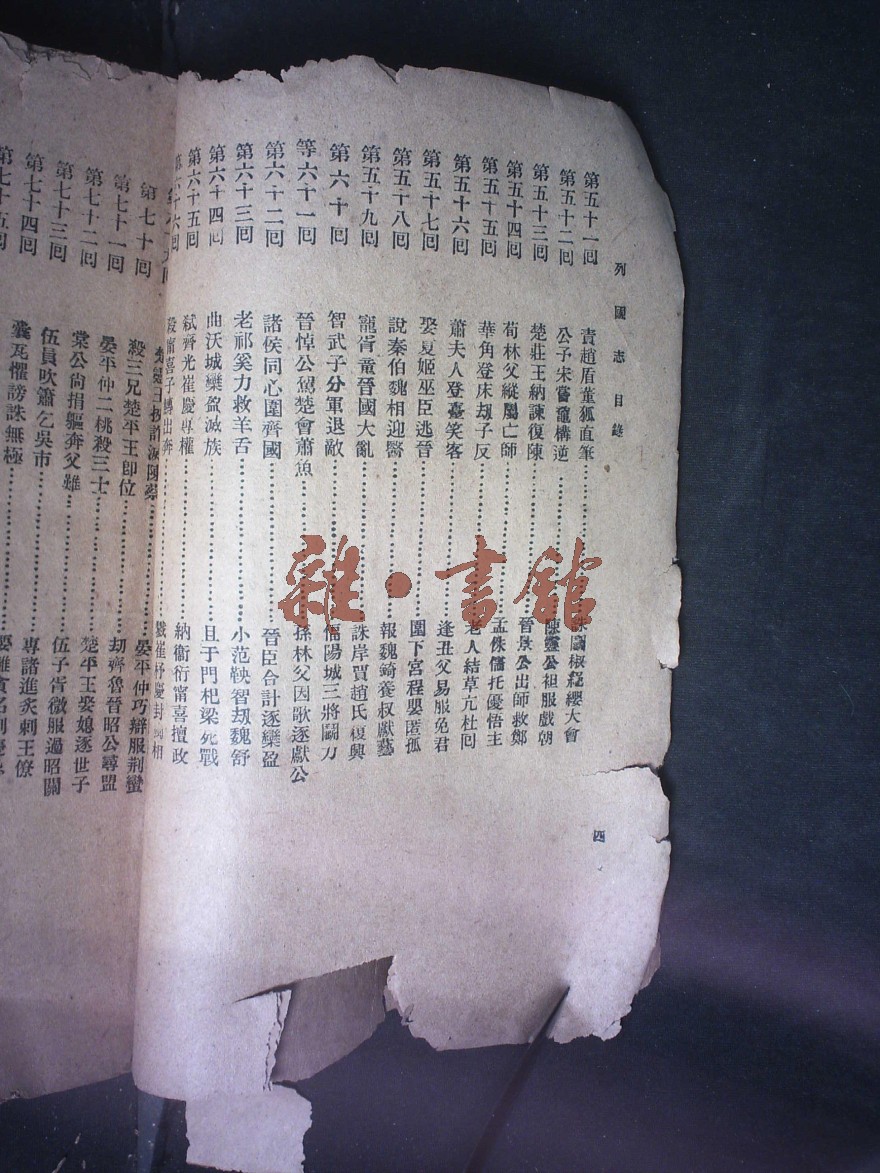 列國志目錄
四
第五十一囘 責趙盾董狐直筆 誅鬭椒絕纓大會
第五十二囘 公子宋嘗黿構逆 陳靈公袒服戲朝
第五十三囘 楚莊王納諫復陳 晉景公出師救鄭
第五十四囘 荀林父縱屬亡師 孟侏儒托優悟主
第五十五囘 華角登床刼子反 老人結草亢杜囘
第五十六囘 蕭夫人登臺笑客 逢丑父易服免君
第五十七囘 娶夏姬巫臣逃晉 圍下宮程嬰匿孤
第五十八囘 說秦伯魏相迎醫 報魏錡養叔獻藝
第五十九囘 寵胥童晉國大亂 誅岸賈趙氏復興
第六十囘 智武子分軍退敵 偪陽城三將鬭力
等六十一囘 晉悼公駕楚會蕭魚 孫林父因歌逐獻公
第六十二囘 諸侯同心圍齊國 晉臣合計逐欒盈
第六十三囘 老祁奚力救羊舌 小范鞅智刼魏舒
第六十四囘 曲沃城欒盈滅族 且于門杞梁死戰
第六十五囘 弑齊光崔慶專權 納衞衎甯喜擅政
第六十六囘 殺甯喜子鱄出奔 戮崔杼慶封 相
第七十囘 殺三兄楚平王卽位 刼齊魯晉昭公尋盟
第七十一囘 晏平仲二桃殺三士 楚平王娶媳逐世子
第七十二囘 棠公尙捐軀奔父難 伍子胥微服過昭關
第七十三囘 伍員吹簫乞吳市 專諸進炙刺王僚
第七十四囘 囊瓦懼謗誅無極
第七十五囘
晏平仲巧辯服荆蠻
雜·書館